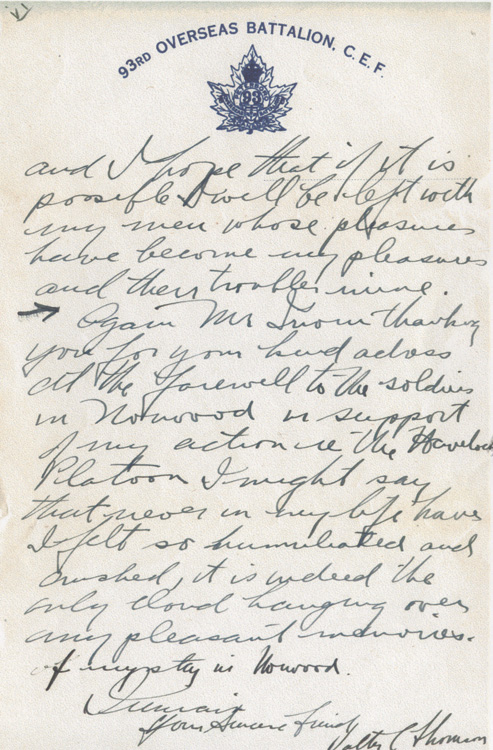 VI
93RD OVERSEAS BATTALION, C.E.F.
93
and I hope that if it is
possible I will be left with
my men whose pleasures
have become my pleasures
and their troubles mine.
→ Again Mr Snow thanking
you for your kind address
at the farewell to the soldiers
in Norwood in support
of my action re the Havelock
Platoon I might say
that never in my life have
I felt so humiliated and
crushed, it is indeed the
only cloud hanging over
my pleasant memories.
of my stay in Norwood.
I remain
Your Sincere friend
Walter C Thomson